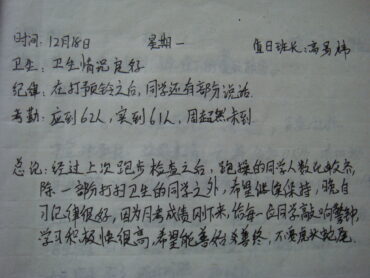 时间：12月18日 星期一 值日班长：高昂
卫生：卫生情况良好
纪律：在打预铃之后，同学还有部分说话.
考勤：应到62人，实到61人，周超然未到
总记：经过上次跑步检查之后，跑操的同学人数比较齐.
除一部分打扫卫生的同学之外，希望继续保持，晚自
习纪律很好，因为月考成绩刚下来，给每一位同学敲响警钟，
学习积极性很高，希望能善始善终，不要虎头蛇尾.